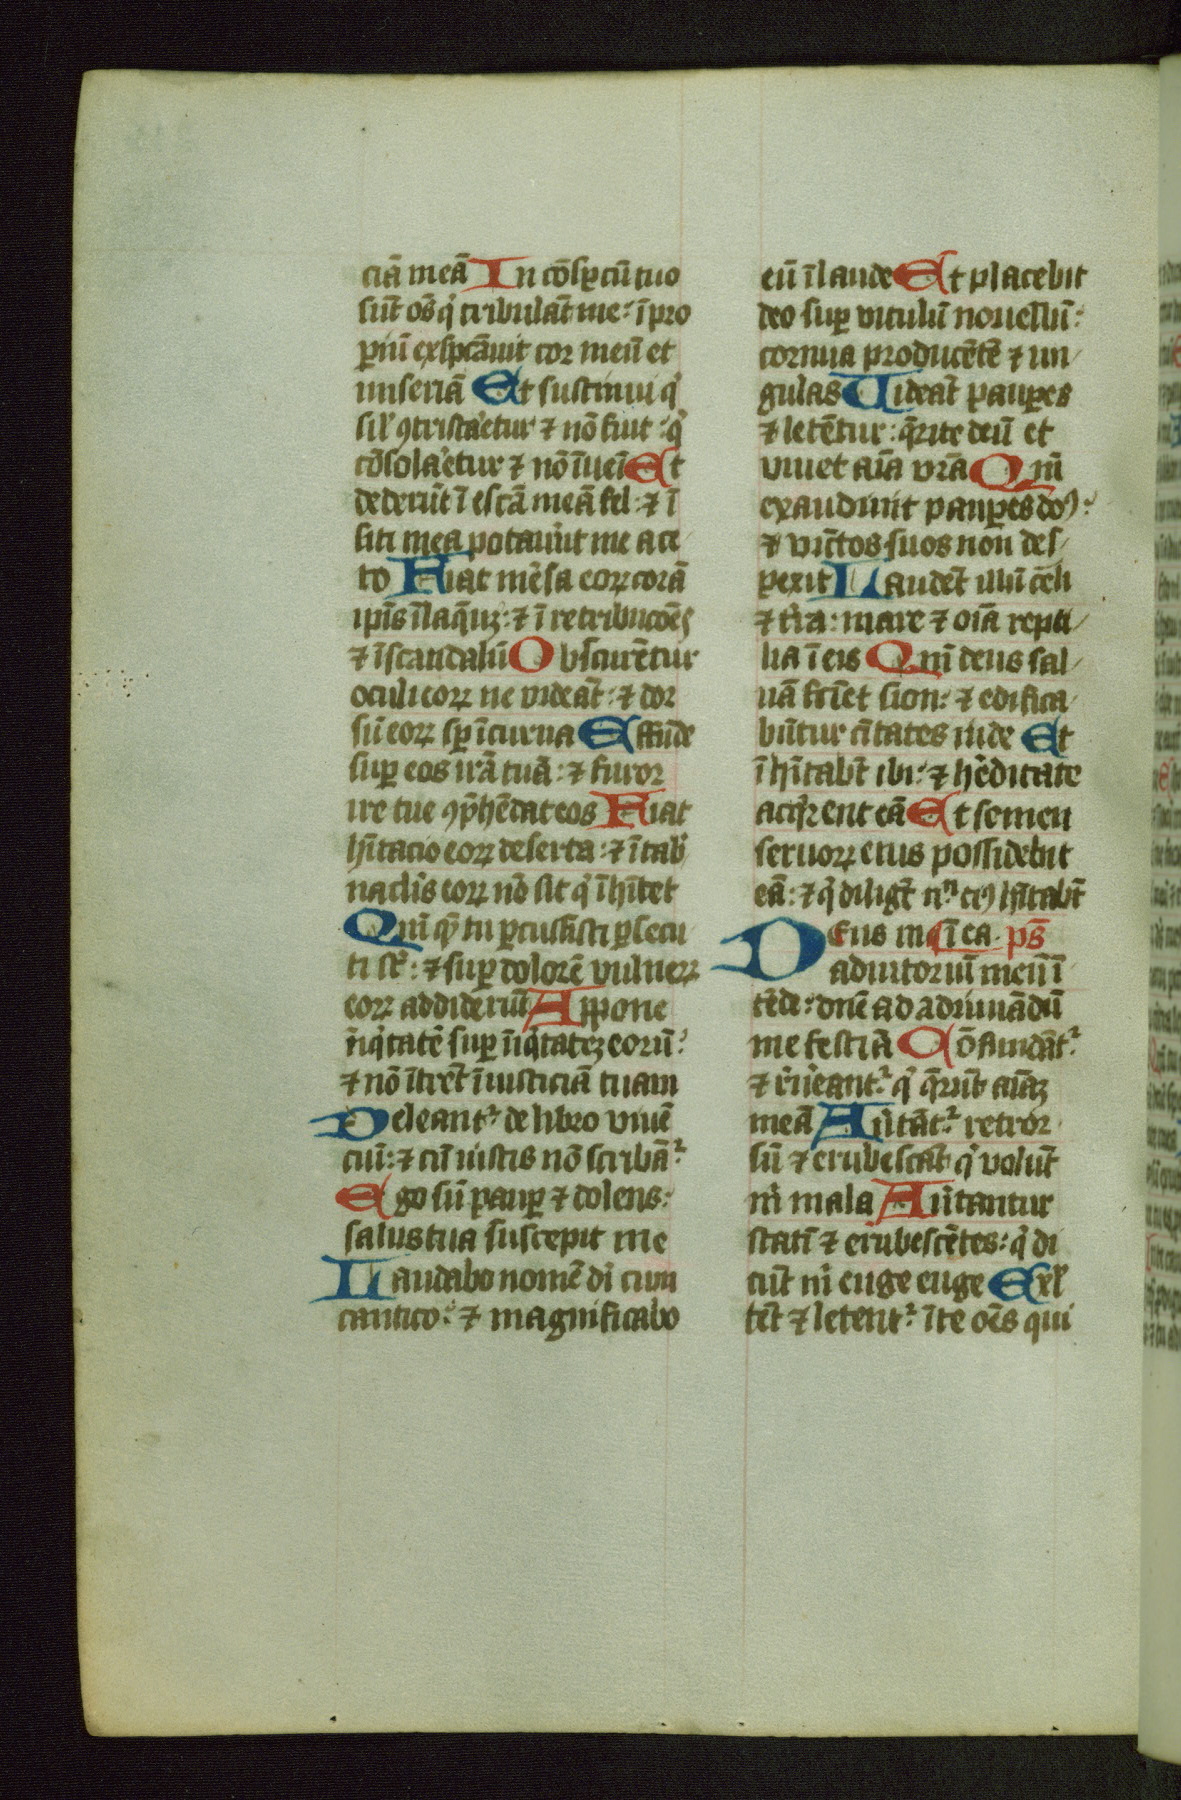 ciā meā In cōspc̄tū tuo
sūt oēs q̇ tribulāt me: īpro
ꝑiū exspcāuit cor meū et
miseriā Et sustinui q̇
sil̕ ꝯtristaretur ⁊ nō fuit: q̇
cōsolaretur ⁊ nō īueī Et
dederūt ī escā meā fel: ⁊ ī
siti mea potauīut me ace
to Fiat mēsa eoꝝ corā
ipīs īlaq̄uꝫ: ⁊ ī retribucōēs
⁊ īscandalū Obscurētur
oculi eoꝝ ne videāt: ⁊ dor
sū eoꝝ sꝑ īcurua Effūde
suꝑ eos irā tuā: ⁊ furor
ire tue ꝯp̄hēdat eos Fiat
hītacio eoꝝ deserta: ⁊ ī tab̕
naclīs eoꝝ nō sit q̇ īhītet
Qm̄ quē tu ꝑcussisti ꝑsecu
ti st̄: ⁊ suꝑ dolorē vulneꝝ
eoꝝ addiderūt Appone
īiq̇tatē suꝑ īiq̇tateꝫ eorū:
⁊ nō ītrēt ī iusticiā tuam
Deleant̕ de libro viuē
ciū: ⁊ cū iustis nō scribāt̕
Ego sū pauꝑ ⁊ dolens:
salus tua suscepit me
Laudabo nomē di̇ cum
cantico: ⁊ magnificabo
eū ī laude Et placebit
deo suꝑ vitulū nouellū:
cornua producētē ⁊ un
gulas Uideāt pauꝑes
⁊ letētur: q̄rite deū et
viuet aīa vrā Qm̄
exaudiuit pauꝑes doꝰ:
⁊ vīctos suos non des
pexit Laudēt illū celi
⁊ tr̄a: mare ⁊ oīa repti
lia ī eis Qm̄ deus sal
uā faciet sion: ⁊ edifica
būtur ciītates iude Et
īhītabt̄ ibi: ⁊ hēditate
acq̇rent eā Et semen
seruoꝝ eius possidebit
eā: ⁊ q̇ diligt̄ nn eiꝰ hītabt̄
Deus in ī ea ps̄
adiutoriū meū ī
tēde: dnē ad adiuuādū
me festiā Cōfūdāt̕
⁊ r̄ueant̕ q̇ q̄rūt aīaꝫ
meā Au̇tāt̕ retror
sū ⁊ erubescāt q̇ volūt
m̄ mala Au̇tantur
statī ⁊ erubescētes: q̇ di
cūt m̄ euge euge Exl̕
tēt ⁊ letent̕ īte oēs qui